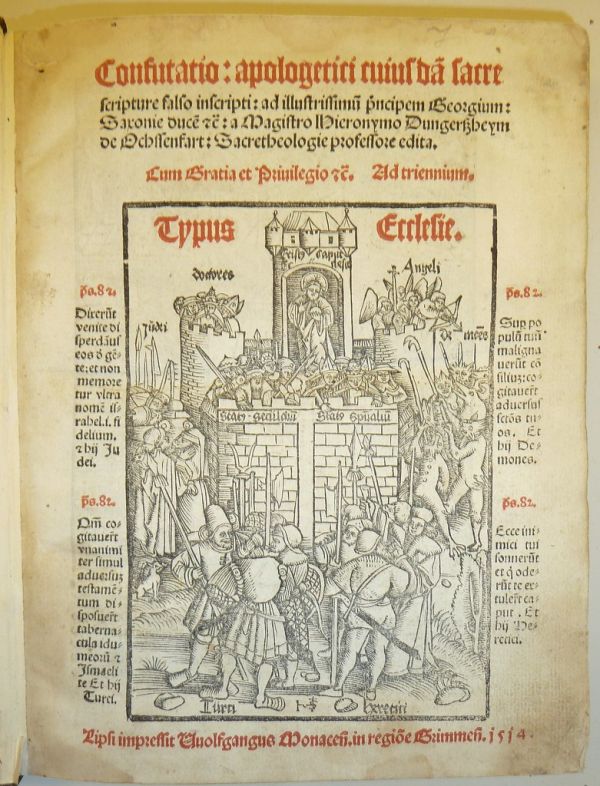 Confutatio: apologetici cuiusdã sacre
scripture falso inscripti: ad illustrissimũ p̃ncipem Georgium:
Saxonie ducẽ ⁊c̃: a Magistro Hieronymo Dungerßheym
de Ochssenfart: Sacretheologie professore edita.
Cum Gratia et Priuilegio ⁊c̃. Ad triennium.
Typus Ecclesie.
Angeli
Judei
p̃s. 82.
Dixerũt
venite di
sperdaꝰ
eos õ gẽ
te: et non
memore
tur vltra
nomẽ is-
rahel. i. fi
delium.
⁊ hij Ju
dei.
p̃s. 82.
Qm̃ co-
gitauerũt
vnanimi
ter simul
aduersuʒ
testamẽ-
tum di-
sposuerũt
taberna-
cula idu-
meorũ ⁊
Jsmaeli
te Et hij
Turci.
p̃s. 82.
Sup po
pulũ tuũ
maligna
uerũt cõ
siliuʒ: co
gitauerũt
aduersus
sctõs tu-
os. Et
hij De-
mones.
p̃s. 82.
Ecce ini-
mici tui
sonuerũt
et q̇ ode-
rũt te ex-
tulerũt ca
put. Et
hij He-
retici.
Turci
heretici
Lipsi impressit Wolfgangus Monaceñ. in regiõe Grimmeñ. 1514.